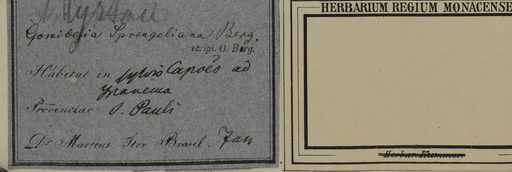 Myrtac
Gomidesia Sprengeliana Berg.
script. O. Berg.
Habitat in sylvis Capoës ad
Ypanema
Provinciae S. Pauli
Dr Martius Iter Brasil. Jan
HERBARIUM REGIUM MONACENSE
Herbar. Kummer.